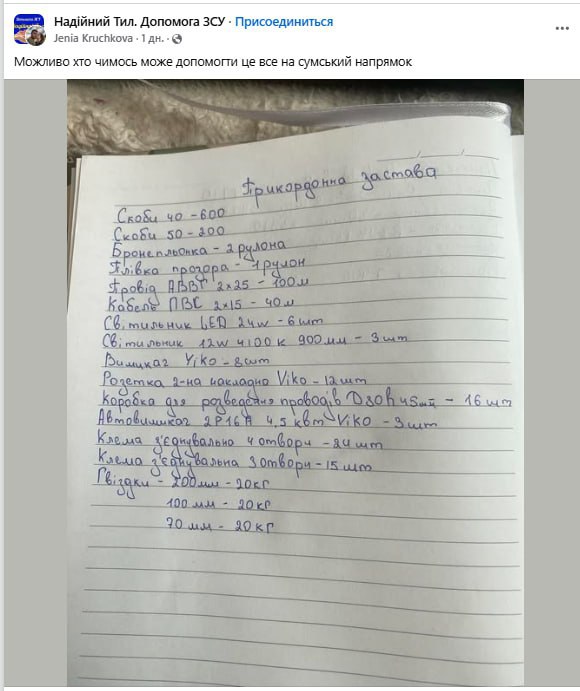 Надійний Тил. Допомога ЗСУ · Присоединиться
Jenia Kruchkova · 1 дн. ·
Можливо хто чимось може допомогти це все на сумський напрямок
Прикордонна застава
Скоби 40 - 600
Скоби 50 - 200
Бронепльонка - 2 рулона
Плівка прозора - 1 рулон
Провід АВВГ 2×25 - 100м
Кабель ПВС 2×15 - 40м
Світильник LED 24w - 6 шт
Світильник 12w 4100к 900мм - 3 шт
Вимикач Viko - 8шт
Розетка 2-на накладна Viko - 12 шт
Коробка для розведення проводів D80 h45мм - 16 шт
Автовимикач 2Р16А 4,5 квт Viko - 3 шт
Клема з'єднувальна 4 отвори - 24 шт
Клема з'єднувальна 3 отвори - 15 шт
Гвіздки - 200мм - 20кг
100 мм - 20кг
70 мм - 20кг